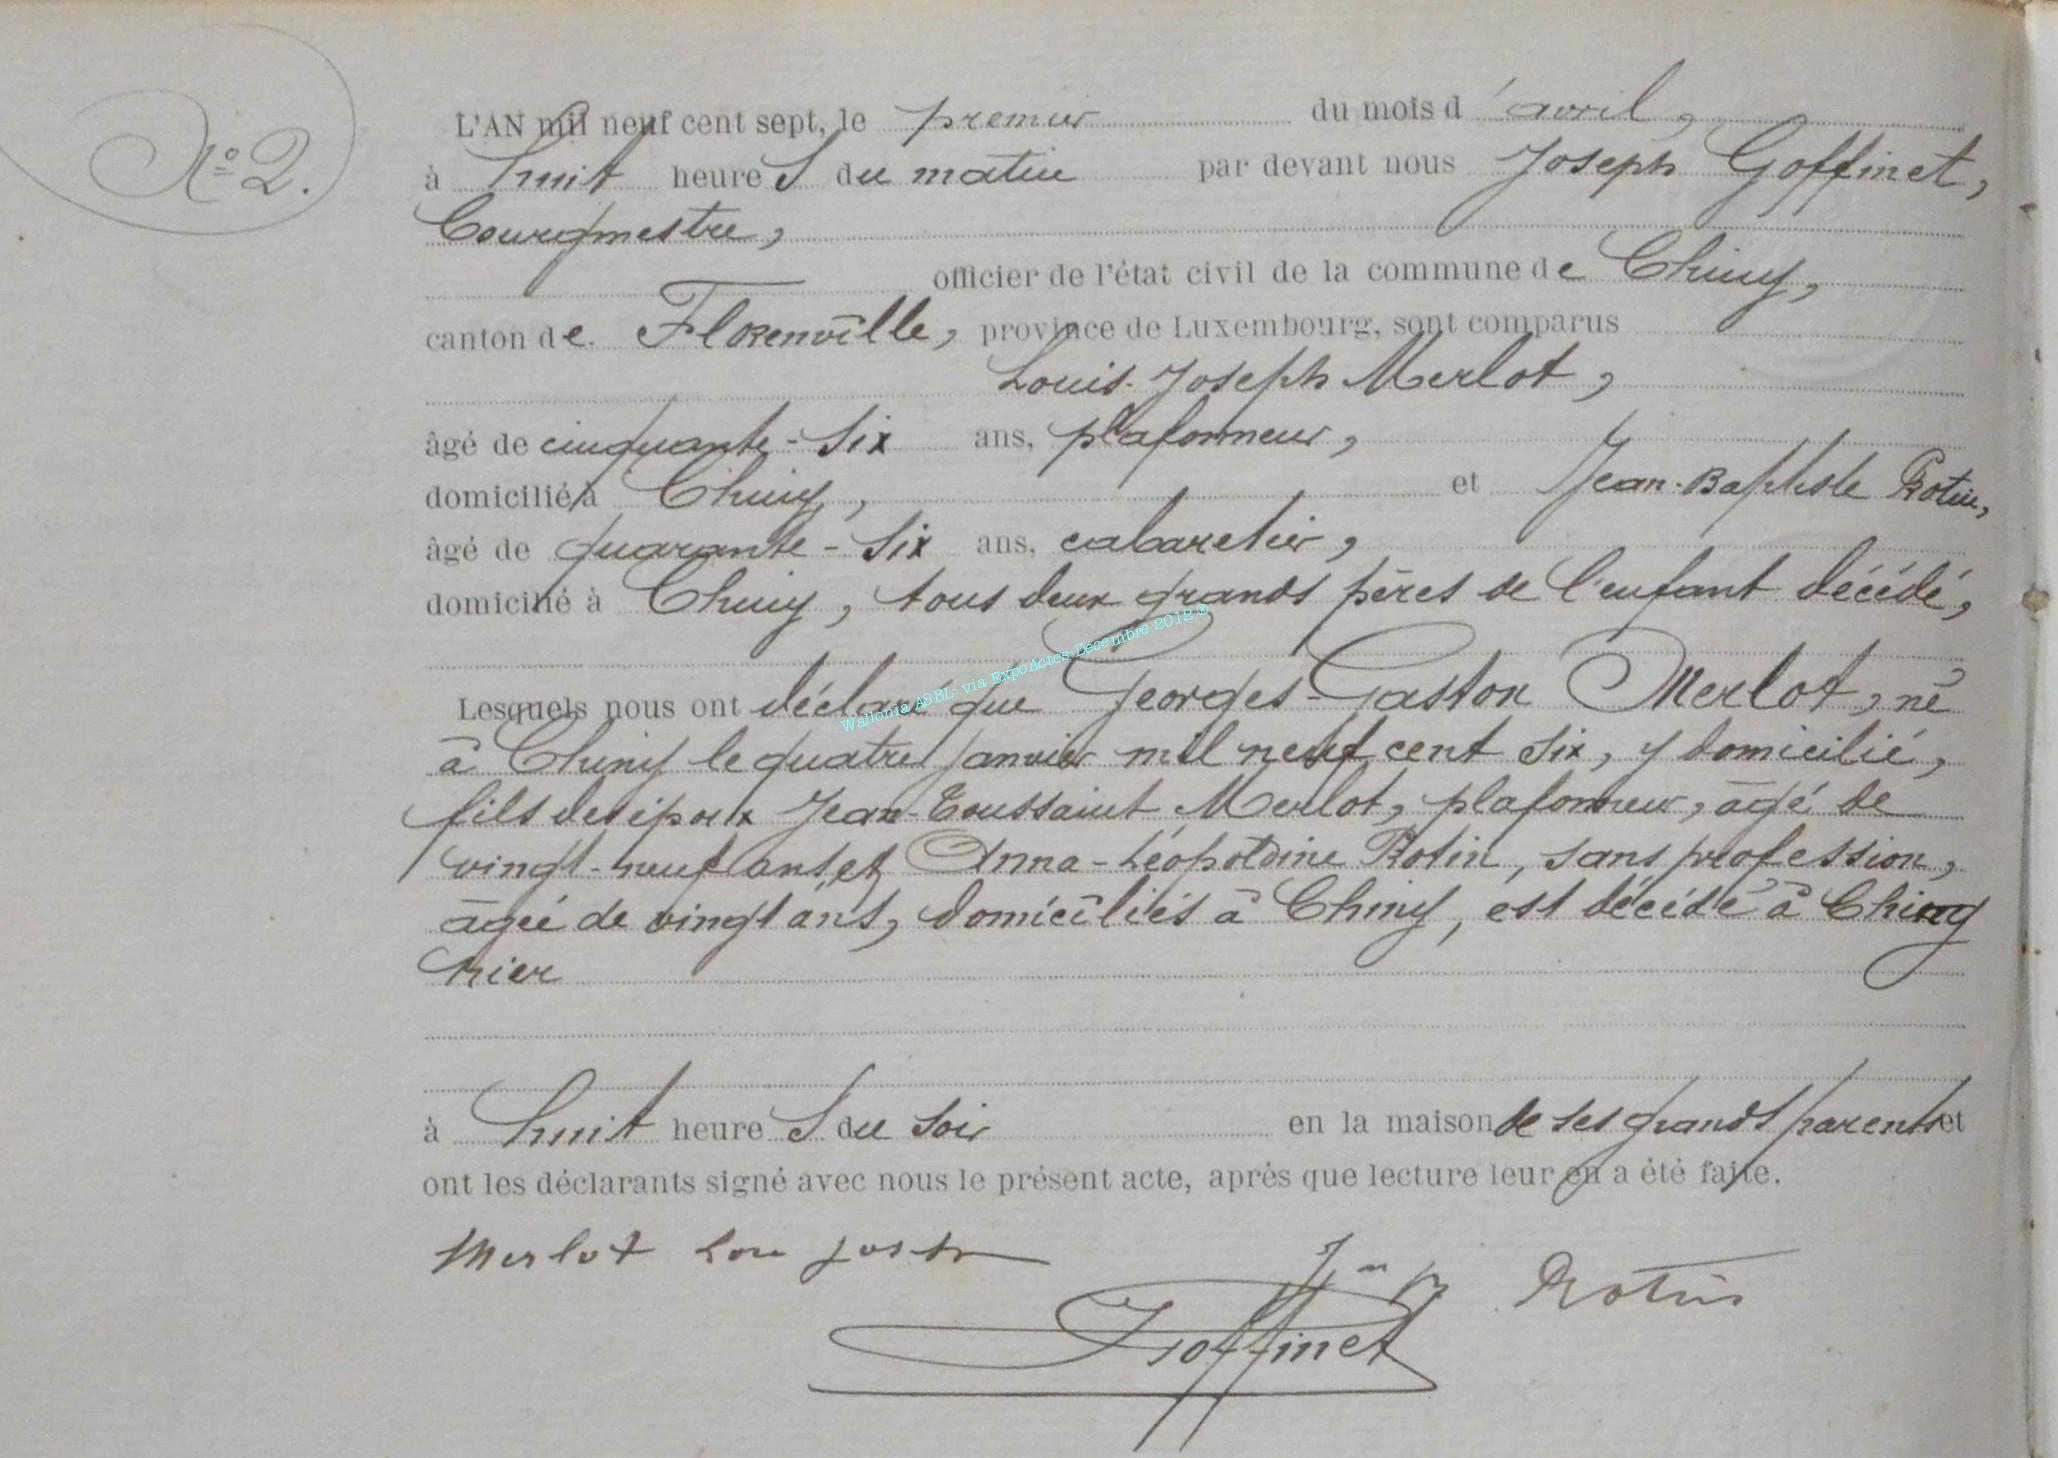 N° 2.
L'AN mil neuf cent sept, le premier du mois d'avril,
à huit heures du matin par devant nous Joseph Goffinet,
Bourgmestre,
officier de l'état civil de la commune de Chiny,
canton de Florenville, province de Luxembourg, sont comparus
Louis-Joseph Merlot,
âgé de cinquante-six ans, plafonneur,
domicilié à Chiny, et Jean-Baptiste Rotin,
âgé de quarante-six ans, cabaretier,
domicilié à Chiny, tous deux grands pères de l'enfant décédé,
Lesquels nous ont déclaré que Georges-Gaston Merlot, né
à Chiny le quatre janvier mil neuf cent six, y domicilié,
fils des époux Jean-Toussaint Merlot, plafonneur, âgé de
vingt-neuf ans, et Anna-Léopoldine Rotin, sans profession,
âgée de vingt ans, domiciliés à Chiny, est décédé à Chiny
hier
à huit heures du soir en la maison de ses grands parents et
ont les déclarants signé avec nous le présent acte, après que lecture leur en a été faite.
Merlot Lou josh
Jn B Rotin
Goffinet
Wallonia ASBL- via ExpoActes-Décembre 2012 ®